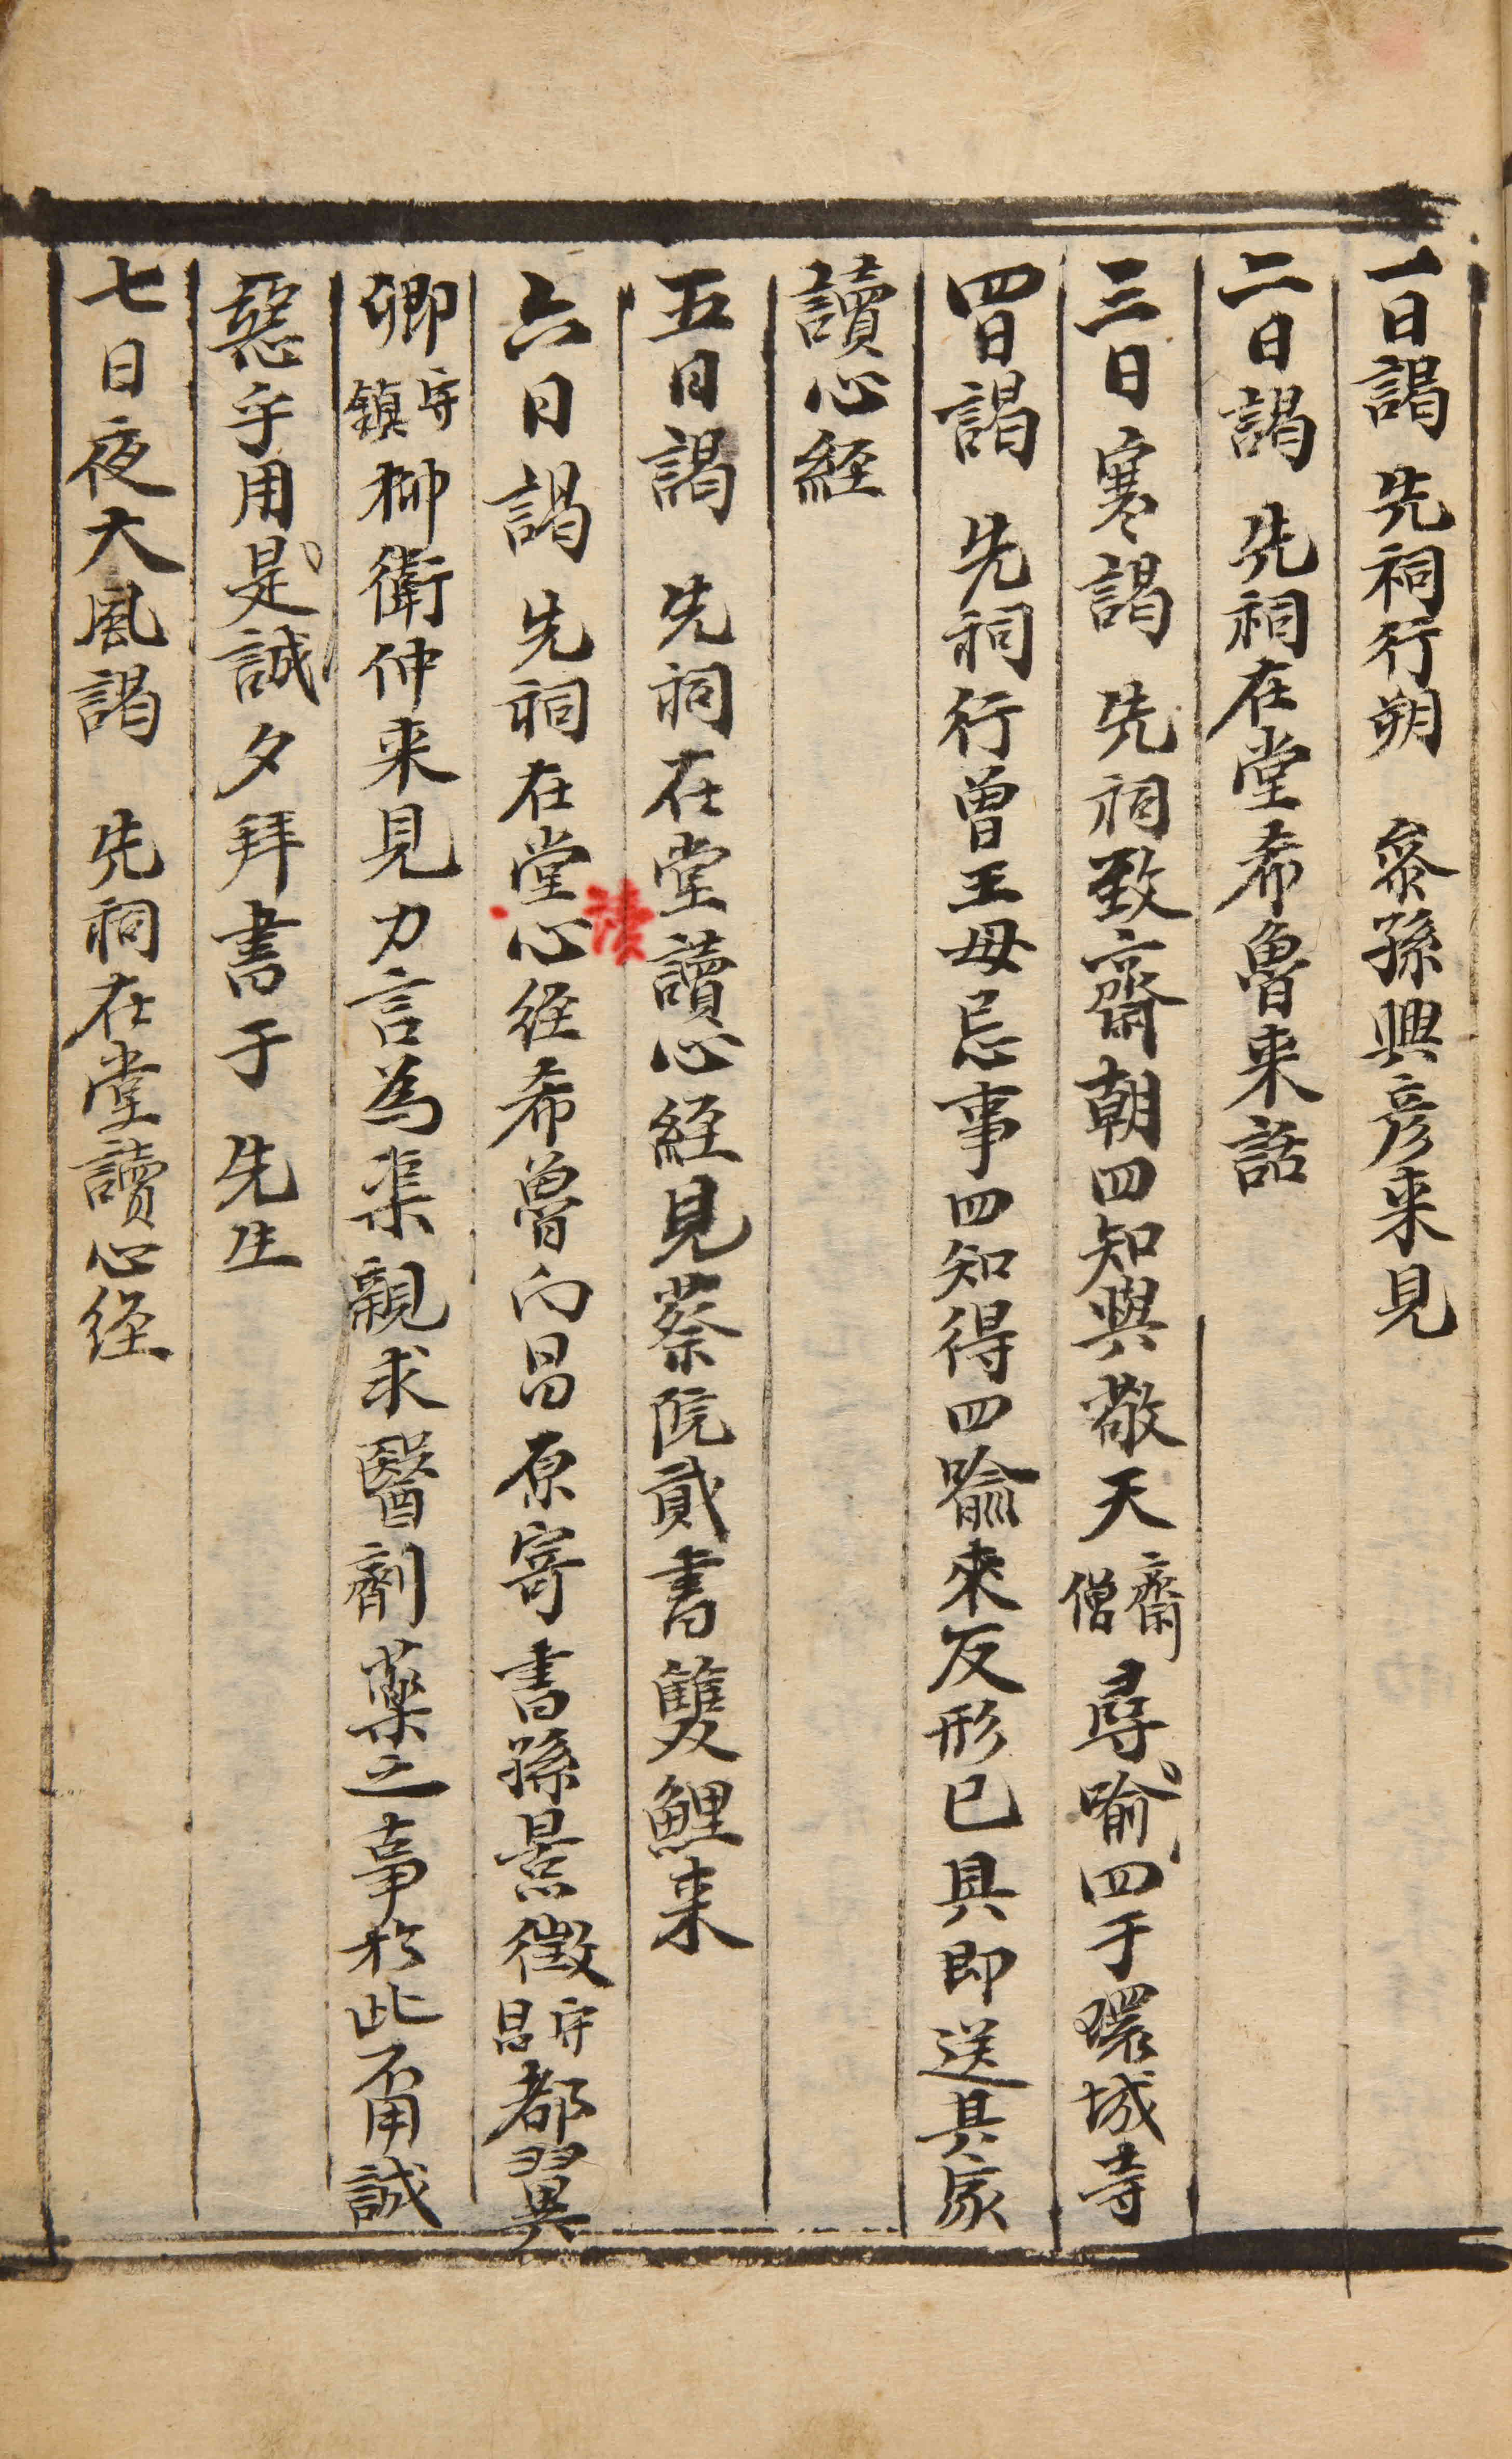 一日謁 先祠行朔 叅孫興彦来見
二日謁 先祠在堂希魯来話
三日寒謁 先祠致齋朝四知與敬天齋僧尋喻四于環城寺
四日謁 先祠行曽王母忌事四知得四喻來反形已具即送其家
讀心経
五日謁 先祠在堂讀心経見蔡院貳書雙鯉来
六日謁 先祠在堂讀心経希魯向昌原寄書孫景徵守昌都翼
卿守鎮柳衛仲来見力言為渠親求醫劑薬之事於此不用誠
惡乎用是誠夕拜書于 先生
七日夜大風謁 先祠在堂讀心経